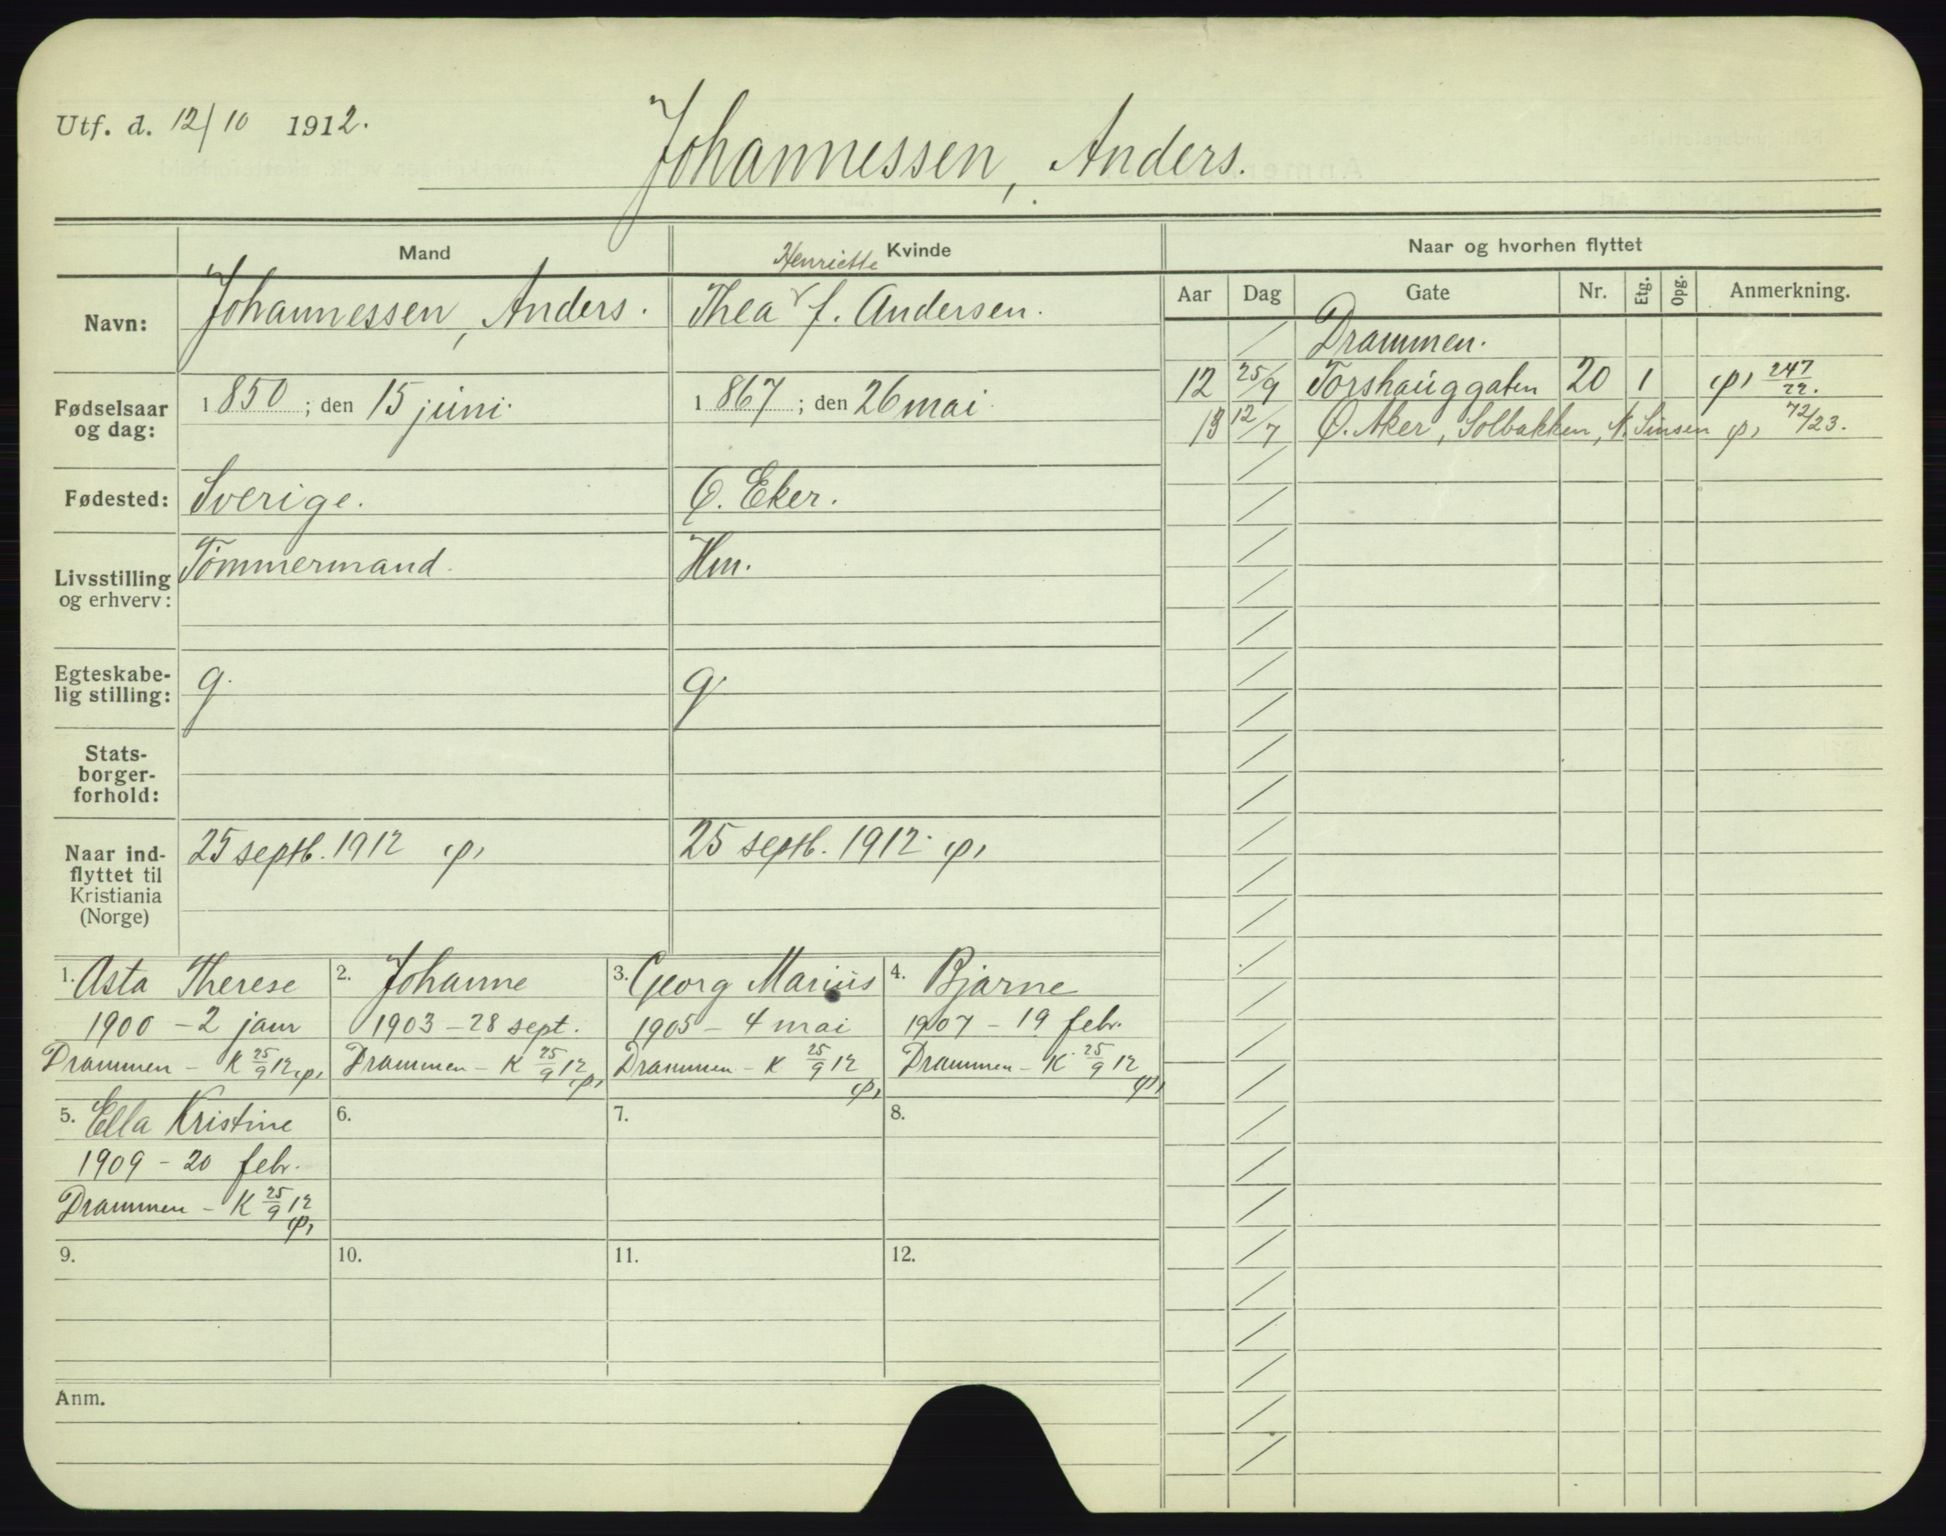 Utf. d. 12/10 1912.
Johannessen, Anders.
Mand
Kvinde
Naar og hvorhen flyttet
Aar Dag Gate Nr. Etg. Opg. Anmerkning.
Navn:
Johannessen, Anders.
Henriette
Thea f. Andersen.
Fødselsaar
og dag:
1850; den 15 juni.
1867; den 26 mai
Fødested:
Sverige.
Ø. Eker.
Livsstilling
og erhverv:
Tømmermand.
Hm.
Egteskabe-
lig stilling:
g.
g.
Stats-
borger-
forhold:
Naar ind-
flyttet til
Kristiania
(Norge)
25 septb. 1912 φ,
25 septb. 1912. φ,
Drammen.
12 25/9 Torshauggaten 20 1 φ, 247/22.
13 12/7 Ø. Aker, Solbakken, N. Sinsen φ, 72/23.
1. Asta Therese
1900 - 2 janr
Drammen - K 25/9 12 φ,
2. Johanne
1903 - 28 sept.
Drammen - K 25/9 12 φ,
3. Georg Marius
1905 - 4 mai
Drammen - K 25/9 12 φ,
4. Bjarne
1907 - 19 febr.
Drammen - K 25/9 12 φ,
5. Ella Kristine
1909 - 20 febr.
Drammen - K 25/9 12 φ,
6.
7.
8.
9.
10.
11.
12.
Anm.